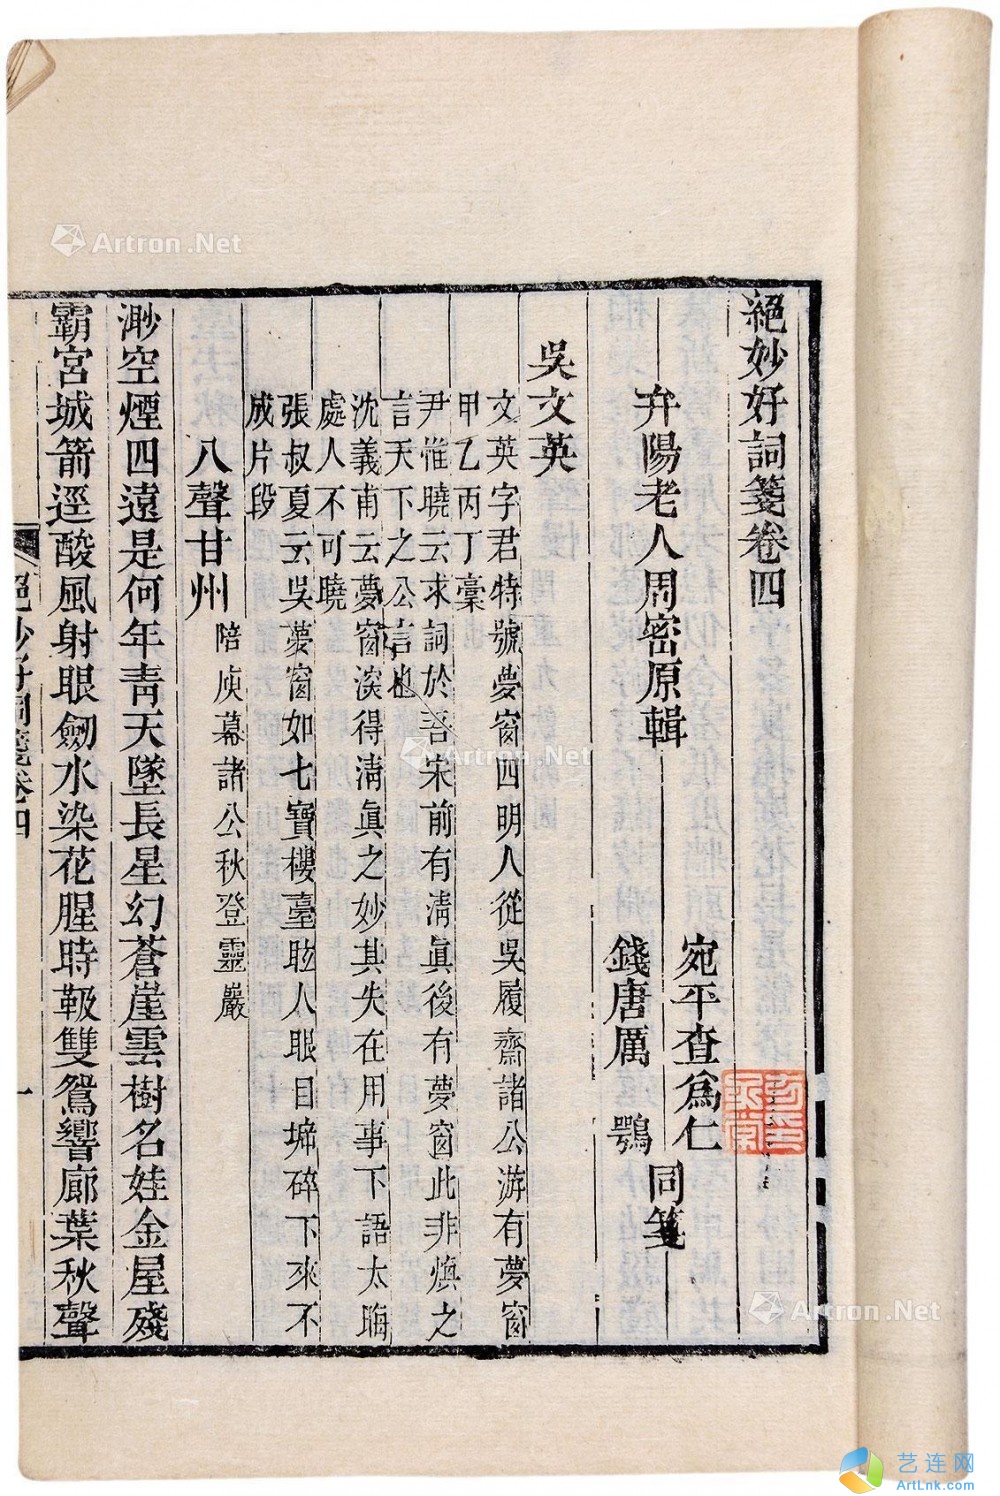 絕妙好詞箋卷四
弁陽老人周密原輯
宛平查為仁
錢唐厲鶚
同箋
吳文英
文英字君特號夢窗四明人從吳履齋諸公游有夢窗
甲乙丙丁稾
尹惟曉云求詞於吾宋前有淸眞後有夢窗此非煥之
言天下之公言也
沈義甫云夢窗深得淸眞之妙其失在用事下語太晦
處人不可曉
張叔夏云吳夢窗如七寶樓臺眩人眼目㙠碎下來不
成片段
八聲甘州 陪庾幕諸公秋登靈巖
渺空煙四遠是何年靑天墜長星幻蒼崖雲樹名娃金屋殘
霸宮城箭逕酸風射眼劒水染花腥時靸雙鴛響廊葉秋聲
絕妙好詞箋卷四
一
Artron.Net
Artron.Net
Artron.Net
艺连网
ArtLnk.com